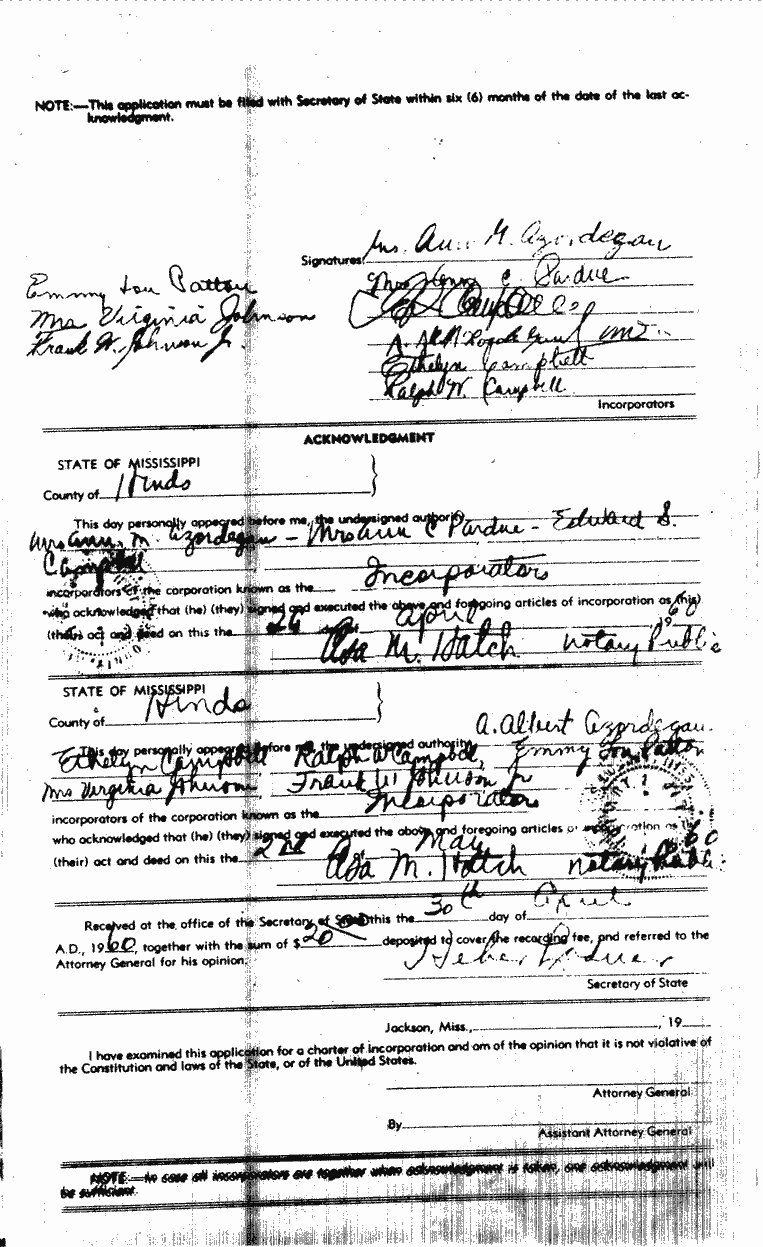 NOTE:—This application must be filed with Secretary of State within six (6) months of the date of the last ac-
knowledgment.
Signatures: Mrs. Ann M. Azordegan
Emmy Lou Patton
Mrs C. Pardue
Mrs Virginia Johnson
Campbell
Frank W. Johnson Jr.
A.
Ethelyn Campbell
Ralph W. Campbell
Incorporators
ACKNOWLEDGMENT
STATE OF MISSISSIPPI
County of Hinds
This day personally appeared before me, the undersigned authority
Mrs Ann M. Azordegan - Mrs Ann C Pardue - Edward S.
Campbell
incorporators of the corporation known as the Incorporators
who acknowledged that (he) (they) signed and executed the above and foregoing articles of incorporation as (his)
(their) act and deed on this the 26 April 1960
Asa M. Hatch Notary Public
STATE OF MISSISSIPPI
County of Hinds
A. Albert Azordegan
This day personally appeared before me, the undersigned authority
Ethelyn Campbell Ralph W Campbell, Emmy Lou Patton
Mrs Virginia Johnson Frank W Johnson Jr
incorporators of the corporation known as the Incorporators
who acknowledged that (he) (they) signed and executed the above and foregoing articles of incorporation as
(their) act and deed on this the 2nd May 60
Asa M. Hatch Notary Public
Received at the office of the Secretary of State this the 30th day of April
A.D., 1960, together with the sum of $20 deposited to cover the recording fee, and referred to the
Attorney General for his opinion.
Heber Ladner
Secretary of State
Jackson, Miss., , 19
I have examined this application for a charter of incorporation and am of the opinion that it is not violative of
the Constitution and laws of the State, or of the United States.
Attorney General
By
Assistant Attorney General
NOTE:—In case all incorporators are together when acknowledgment is taken, one acknowledgment will
be sufficient.